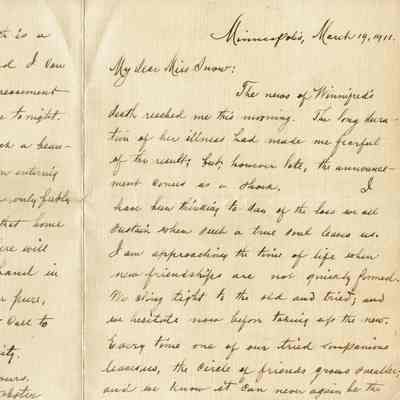 Minneapolis, March 19, 1911.
My dear Miss Snow:
The news of Winnifred's
death reached me this morning. The long dura-
tion of her illness had made me fearful
of the result; but, however late, the announce-
ment comes as a shock. I
have been thinking to-day of the loss we all
sustain when such a true soul leaves us.
I am approaching the time of life when
new friendships are not quickly formed.
We cling tight to the old and tried; and
we hesitate now before taking up the new.
Every time one of our tried companions
leaves us, the circle of friends grows smaller,
and we know it can never again be the
th is a
d I can
reassment
e to-night.
ch a beau-
n entering
only feebly
that home
ere will
hand in
r pure,
call to
ity.
ours.